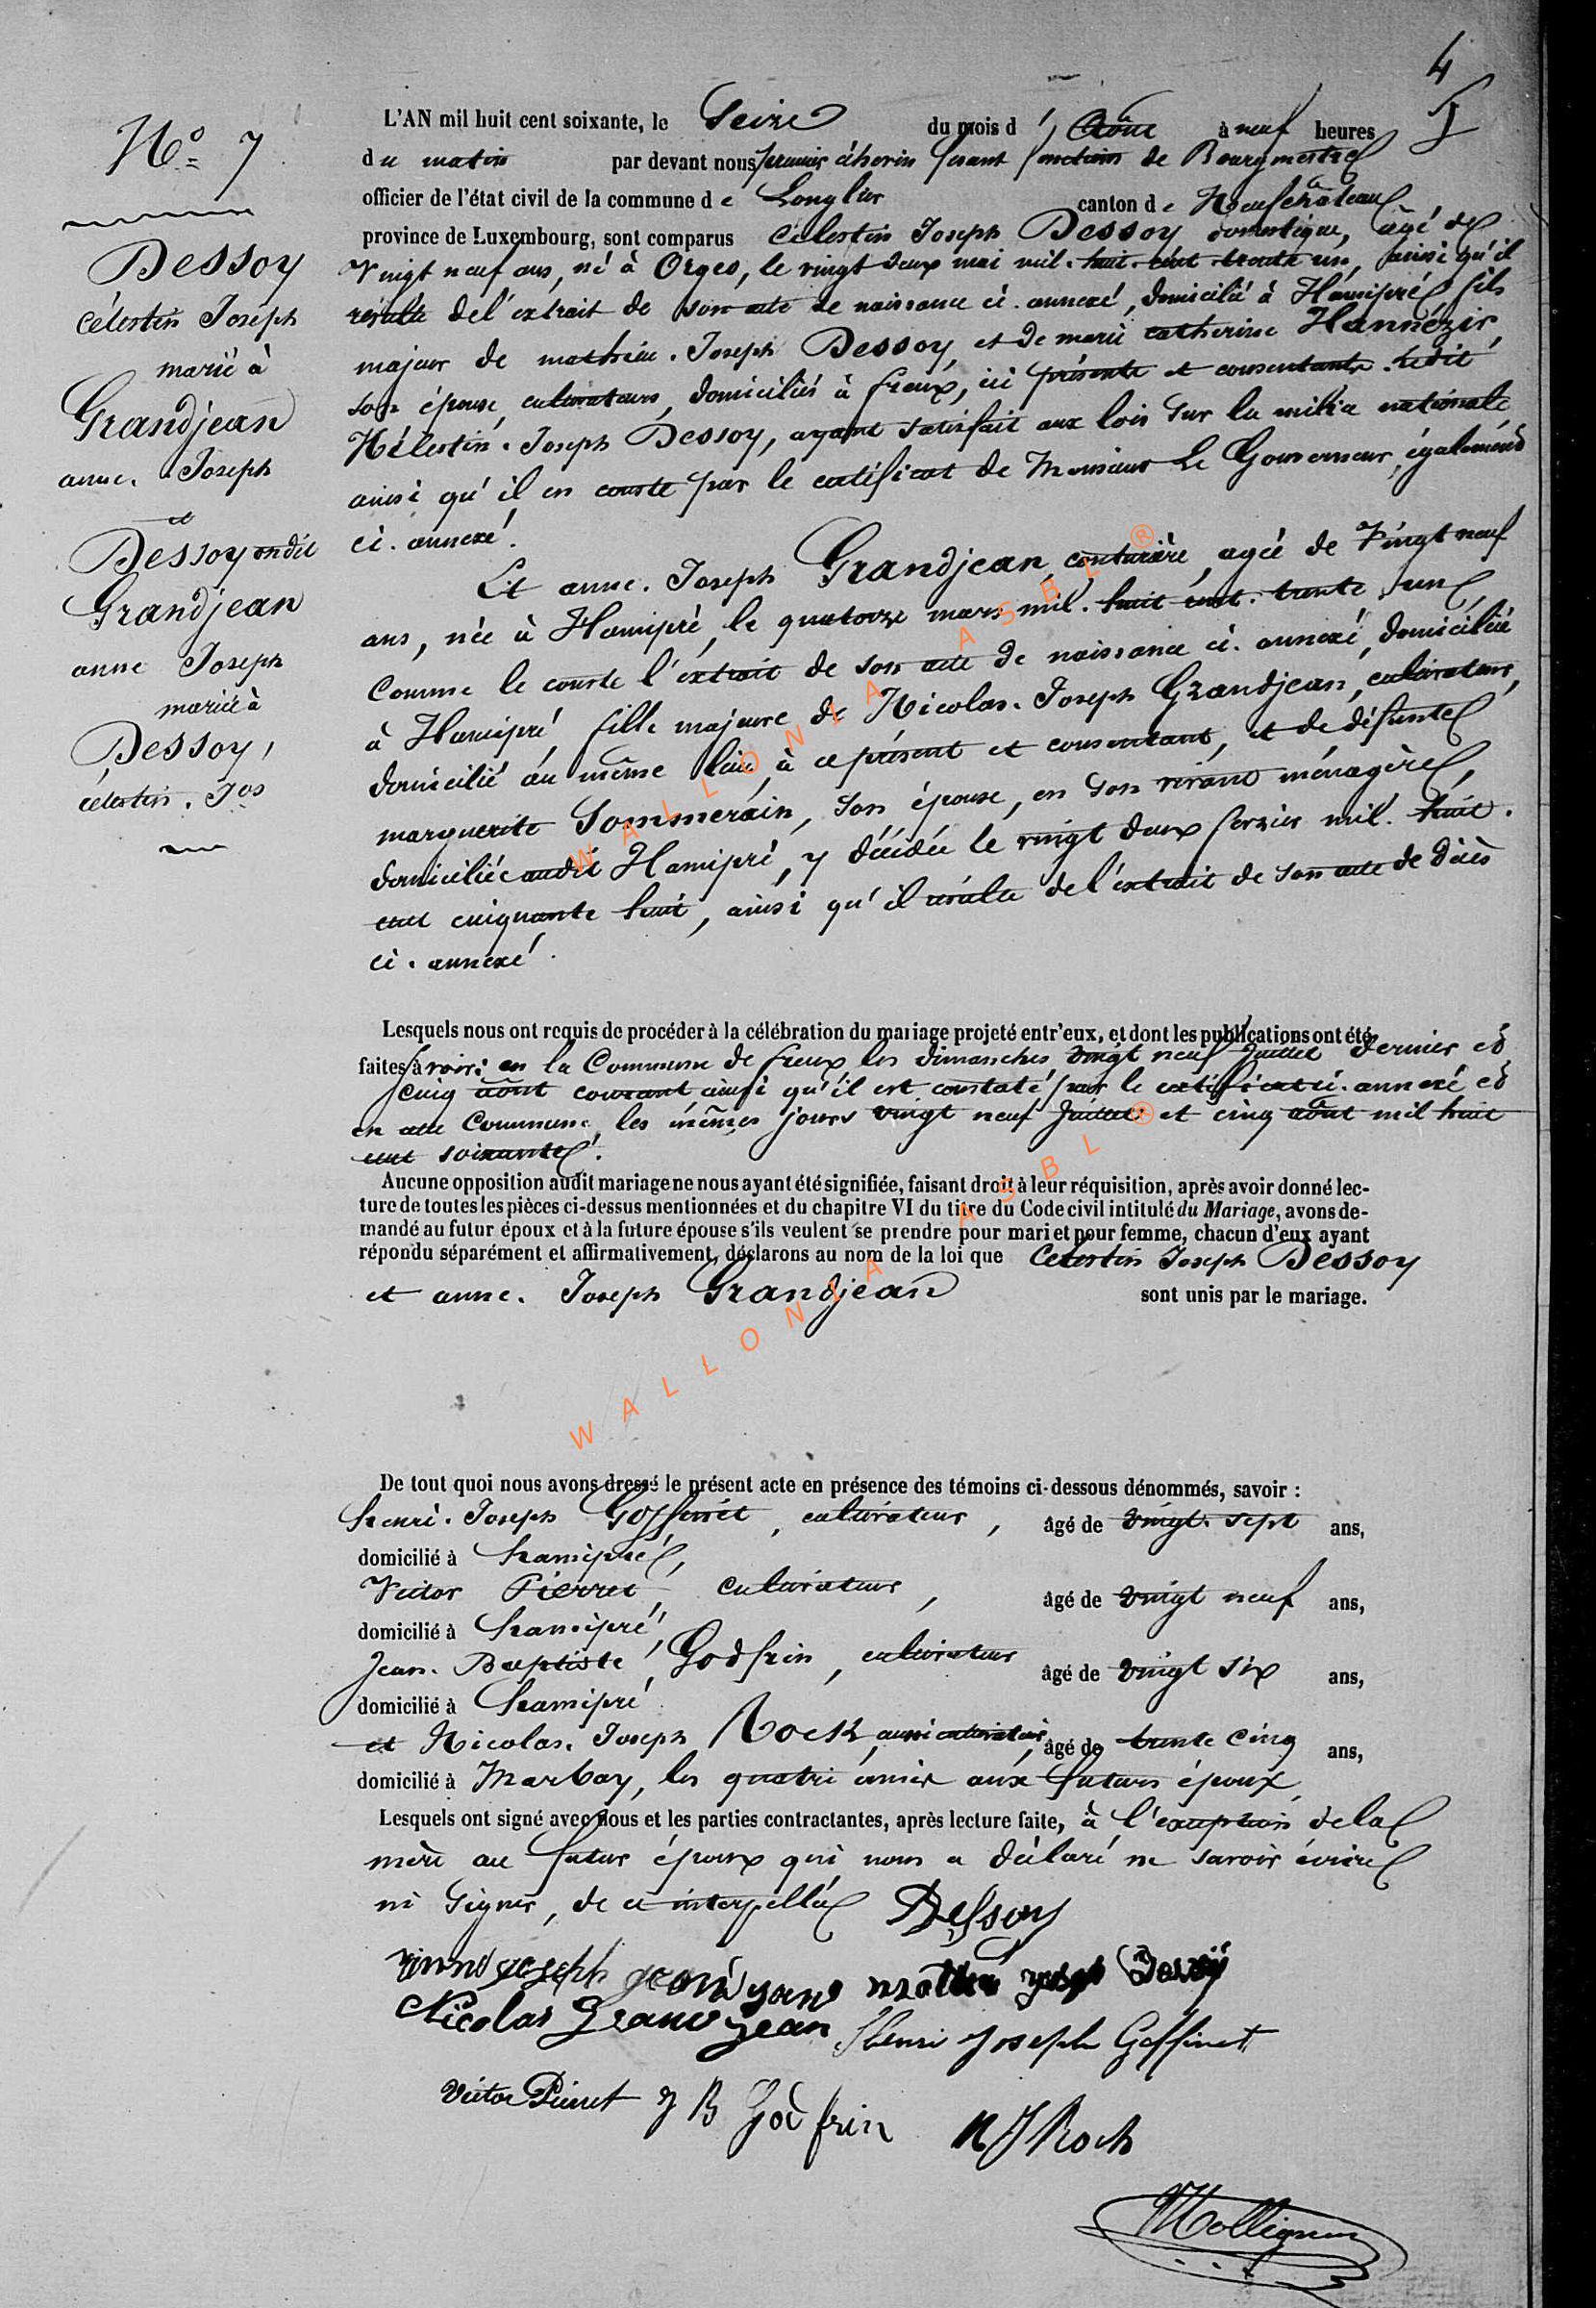 4
N° 7
Dessoy
célestin Joseph
marié à
Grandjean
anne. Joseph
et
Dessoy
Grandjean
anne Joseph
mariée à
Dessoy,
célestin. Jos
L'AN mil huit cent soixante, le Seize du mois d' Août à neuf heures
du matin par devant nous premier échevin fesant fonctions de Bourgmestre
officier de l'état civil de la commune de Longlier canton de Neufchâteau
province de Luxembourg, sont comparus Célestin Joseph Dessoy domestique, âgé de
Vingt neuf ans, né à Orgeo, le vingt deux mai mil. huit. cent. trente un, ainsi qu'il
résulte de l'extrait de son acte de naissance ci. annexé, domicilié à Hamipré, fils
majeur de mathieu. Joseph Dessoy, et de marie catherine
son épouse, cultivateurs, domiciliés à freux, ici présents et consentants. Ledit
Célestin. Joseph Dessoy, ayant satisfait aux lois sur la milice nationale
ainsi qu'il en conste par le certificat de Monsieur Le Gouverneur, également
ci. annexé.
Et anne. Joseph Grandjean, couturière, agée de Vingt neuf
ans, née à Hamipré, le quatorze mars mil. huit cent. trente un,
Comme le conste l'extrait de son acte de naissance ci. annexé, domiciliée
à Hamipré fille majeure de Nicolas. Joseph Grandjean, cultivateur,
domicilié au même lieu, à ce présent et consentant, et de défunte
marguerite Sommerain, son épouse, en son vivant ménagère,
domiciliée audit Hamipré, y décédée le vingt deux fevrier mil. huit.
cent cinquante huit, ainsi qu'il résulte de l'extrait de son acte de décès
ci. annexé.
Lesquels nous ont requis de procéder à la célébration du mariage projeté entr'eux, et dont les publications ont été
faites savoir: en la Commune de freux les dimanches vingt neuf Juillet dernier et
cinq août courant ainsi qu'il est constaté par le certificat ci. annexé et
en cette Commune, les mêmes jours vingt neuf Juillet et cinq août mil huit
cent soixante.
Aucune opposition audit mariage ne nous ayant été signifiée, faisant droit à leur réquisition, après avoir donné lec-
ture de toutes les pièces ci-dessus mentionnées et du chapitre VI du titre du Code civil intitulé du Mariage, avons de-
mandé au futur époux et à la future épouse s'ils veulent se prendre pour mari et pour femme, chacun d'eux ayant
répondu séparément et affirmativement, déclarons au nom de la loi que Celestin Joseph Dessoy
et anne. Joseph Grandjean sont unis par le mariage.
De tout quoi nous avons dressé le présent acte en présence des témoins ci-dessous dénommés, savoir :
henri. Joseph Goffinet, cultivateur, âgé de vingt. sept ans,
domicilié à hamipré,
Victor Pierret, cultivateur, âgé de vingt neuf ans,
domicilié à hamipré,
Jean. Baptiste Godfrin, cultivateur âgé de vingt six ans,
domicilié à hamipré
et Nicolas. Joseph Rock, aussi cultivateur, âgé de trente cinq ans,
domicilié à Marbay, les quatre amis aux futurs époux,
Lesquels ont signé avec nous et les parties contractantes, après lecture faite, à l'exception de la
mère au futur époux qui nous a déclaré ne savoir écrire
ni signer, de ce interpellée
Dessoy
Nicolas Grandjean
Henri Joseph Goffinet
Victor Pierret
J B Godfrin
N J Roch
WALLONIA ASBL ®
WALLONIA ASBL ®